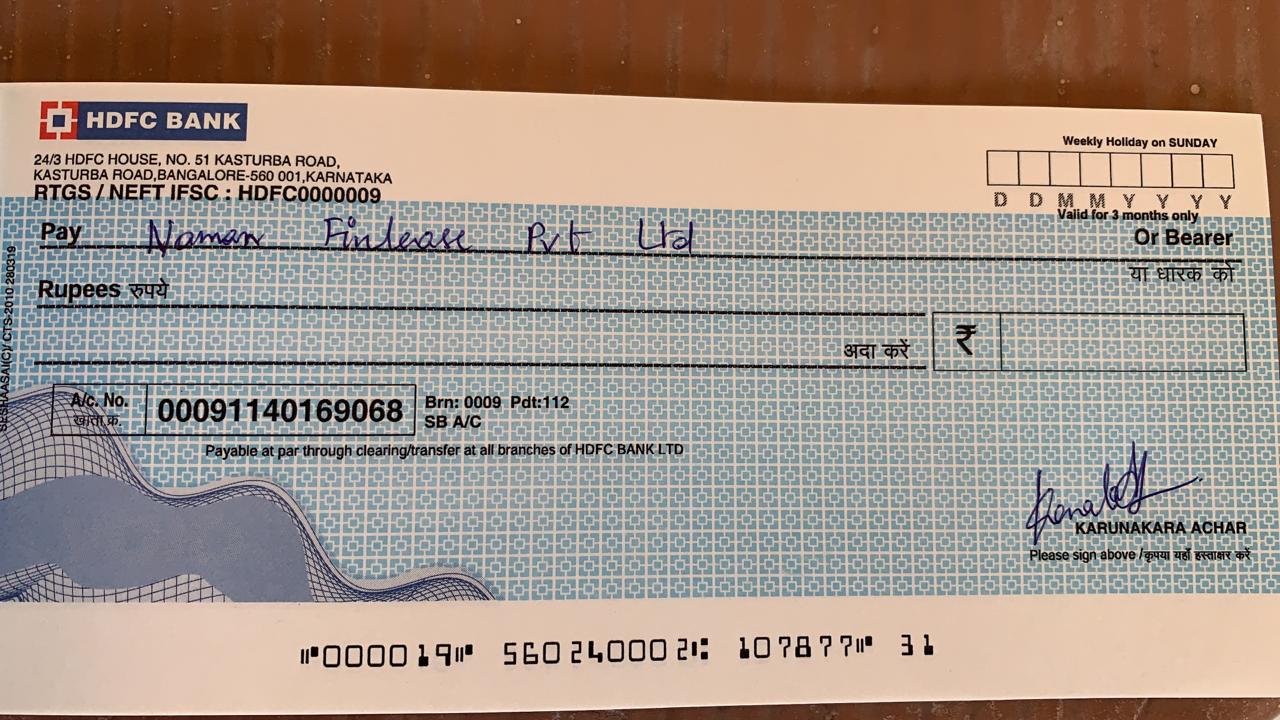 HDFC BANK
24/3 HDFC HOUSE, NO. 51 KASTURBA ROAD,
KASTURBA ROAD,BANGALORE-560 001,KARNATAKA
RTGS / NEFT IFSC : HDFC0000009
Weekly Holiday on SUNDAY
D D M M Y Y Y Y
Valid for 3 months only
Pay Naman Finlease Pvt Ltd
Or Bearer
या धारक को
Rupees रुपये
अदा करें ₹
A/c. No.
खाता क्र.
00091140169068
Brn: 0009 Pdt:112
SB A/C
Payable at par through clearing/transfer at all branches of HDFC BANK LTD
KARUNAKARA ACHAR
Please sign above /कृपया यहाँ हस्ताक्षर करें
⑈000019⑈ 560240002⑆ 107877⑈ 31